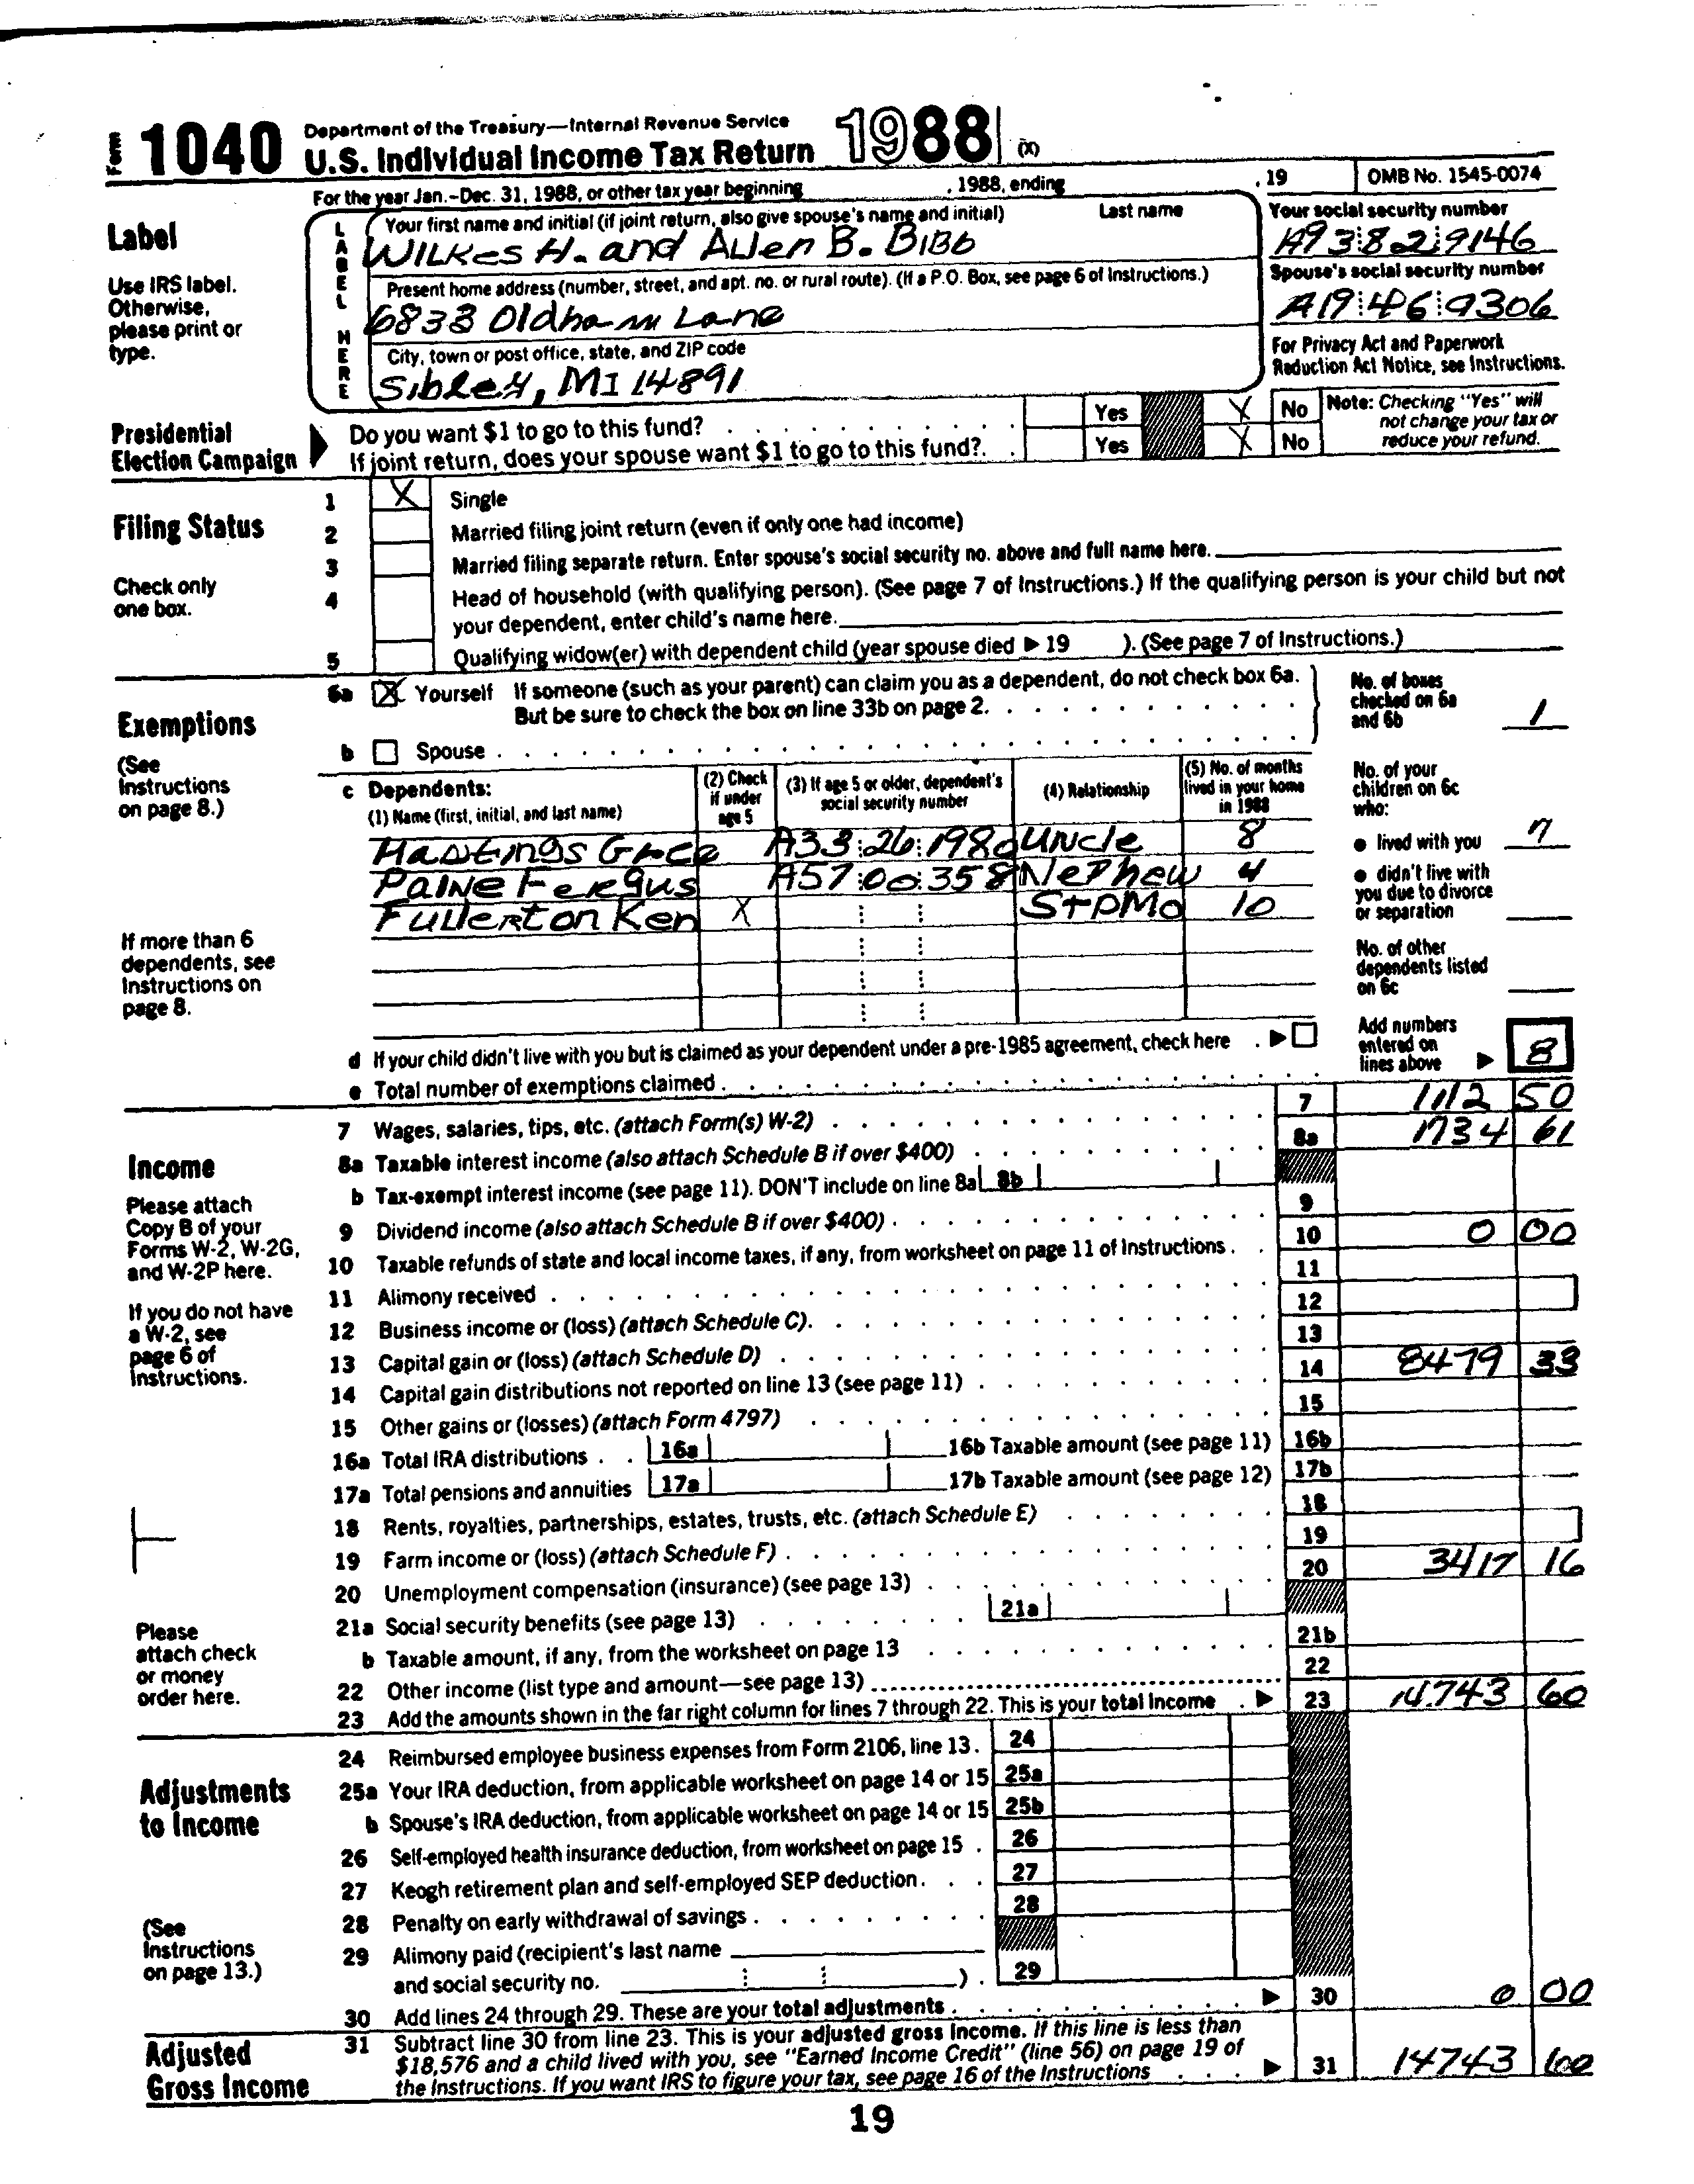 Form 1040 Department of the Treasury—Internal Revenue Service
U.S. Individual Income Tax Return 1988 (X)
For the year Jan.-Dec. 31, 1988, or other tax year beginning , 1988, ending , 19 OMB No. 1545-0074
Label
Use IRS label. Otherwise, please print or type.
LABEL HERE
Your first name and initial (if joint return, also give spouse's name and initial) Last name
WILKes H. and Allen B. BIBb
Your social security number
A93 82 9146
Present home address (number, street, and apt. no. or rural route). (If a P.O. Box, see page 6 of Instructions.)
6838 Oldham Lane
Spouse's social security number
A19 46 9306
City, town or post office, state, and ZIP code
Sibley, MI 14891
For Privacy Act and Paperwork Reduction Act Notice, see Instructions.
Presidential Election Campaign
Do you want $1 to go to this fund? Yes X No
If joint return, does your spouse want $1 to go to this fund? Yes X No
Note: Checking "Yes" will not change your tax or reduce your refund.
Filing Status
Check only one box.
1 X Single
2 Married filing joint return (even if only one had income)
3 Married filing separate return. Enter spouse's social security no. above and full name here.
4 Head of household (with qualifying person). (See page 7 of Instructions.) If the qualifying person is your child but not
your dependent, enter child's name here.
5 Qualifying widow(er) with dependent child (year spouse died ▶ 19 ). (See page 7 of Instructions.)
Exemptions
(See Instructions on page 8.)
6a X Yourself If someone (such as your parent) can claim you as a dependent, do not check box 6a.
But be sure to check the box on line 33b on page 2.
b Spouse
No. of boxes checked on 6a and 6b 1
c Dependents:
(1) Name (first, initial, and last name) (2) Check if under age 5 (3) If age 5 or older, dependent's social security number (4) Relationship (5) No. of months lived in your home in 1988
Hastings Grce A33 26 1980 Uncle 8
Paine Fergus A57 00 358 Nephew 4
Fullerton Ken X StpMo 10
If more than 6 dependents, see Instructions on page 8.
No. of your children on 6c who:
• lived with you 7
• didn't live with you due to divorce or separation
No. of other dependents listed on 6c
d If your child didn't live with you but is claimed as your dependent under a pre-1985 agreement, check here ▶
e Total number of exemptions claimed
Add numbers entered on lines above ▶ 8
Income
Please attach Copy B of your Forms W-2, W-2G, and W-2P here.
If you do not have a W-2, see page 6 of Instructions.
Please attach check or money order here.
7 Wages, salaries, tips, etc. (attach Form(s) W-2) 7 1112 50
8a Taxable interest income (also attach Schedule B if over $400) 8a 1734 61
b Tax-exempt interest income (see page 11). DON'T include on line 8a 8b
9 Dividend income (also attach Schedule B if over $400) 9
10 Taxable refunds of state and local income taxes, if any, from worksheet on page 11 of Instructions 10 0 00
11 Alimony received 11
12 Business income or (loss) (attach Schedule C) 12
13 Capital gain or (loss) (attach Schedule D) 13
14 Capital gain distributions not reported on line 13 (see page 11) 14 8479 33
15 Other gains or (losses) (attach Form 4797) 15
16a Total IRA distributions 16a 16b Taxable amount (see page 11) 16b
17a Total pensions and annuities 17a 17b Taxable amount (see page 12) 17b
18 Rents, royalties, partnerships, estates, trusts, etc. (attach Schedule E) 18
19 Farm income or (loss) (attach Schedule F) 19
20 Unemployment compensation (insurance) (see page 13) 20 3417 16
21a Social security benefits (see page 13) 21a
b Taxable amount, if any, from the worksheet on page 13 21b
22 Other income (list type and amount—see page 13) 22
23 Add the amounts shown in the far right column for lines 7 through 22. This is your total income ▶ 23 14743 60
Adjustments to Income
(See Instructions on page 13.)
24 Reimbursed employee business expenses from Form 2106, line 13. 24
25a Your IRA deduction, from applicable worksheet on page 14 or 15 25a
b Spouse's IRA deduction, from applicable worksheet on page 14 or 15 25b
26 Self-employed health insurance deduction, from worksheet on page 15 26
27 Keogh retirement plan and self-employed SEP deduction 27
28 Penalty on early withdrawal of savings 28
29 Alimony paid (recipient's last name
and social security no. ) 29
30 Add lines 24 through 29. These are your total adjustments ▶ 30 0 00
Adjusted Gross Income
31 Subtract line 30 from line 23. This is your adjusted gross income. If this line is less than
$18,576 and a child lived with you, see "Earned Income Credit" (line 56) on page 19 of
the Instructions. If you want IRS to figure your tax, see page 16 of the Instructions ▶ 31 14743 60
19